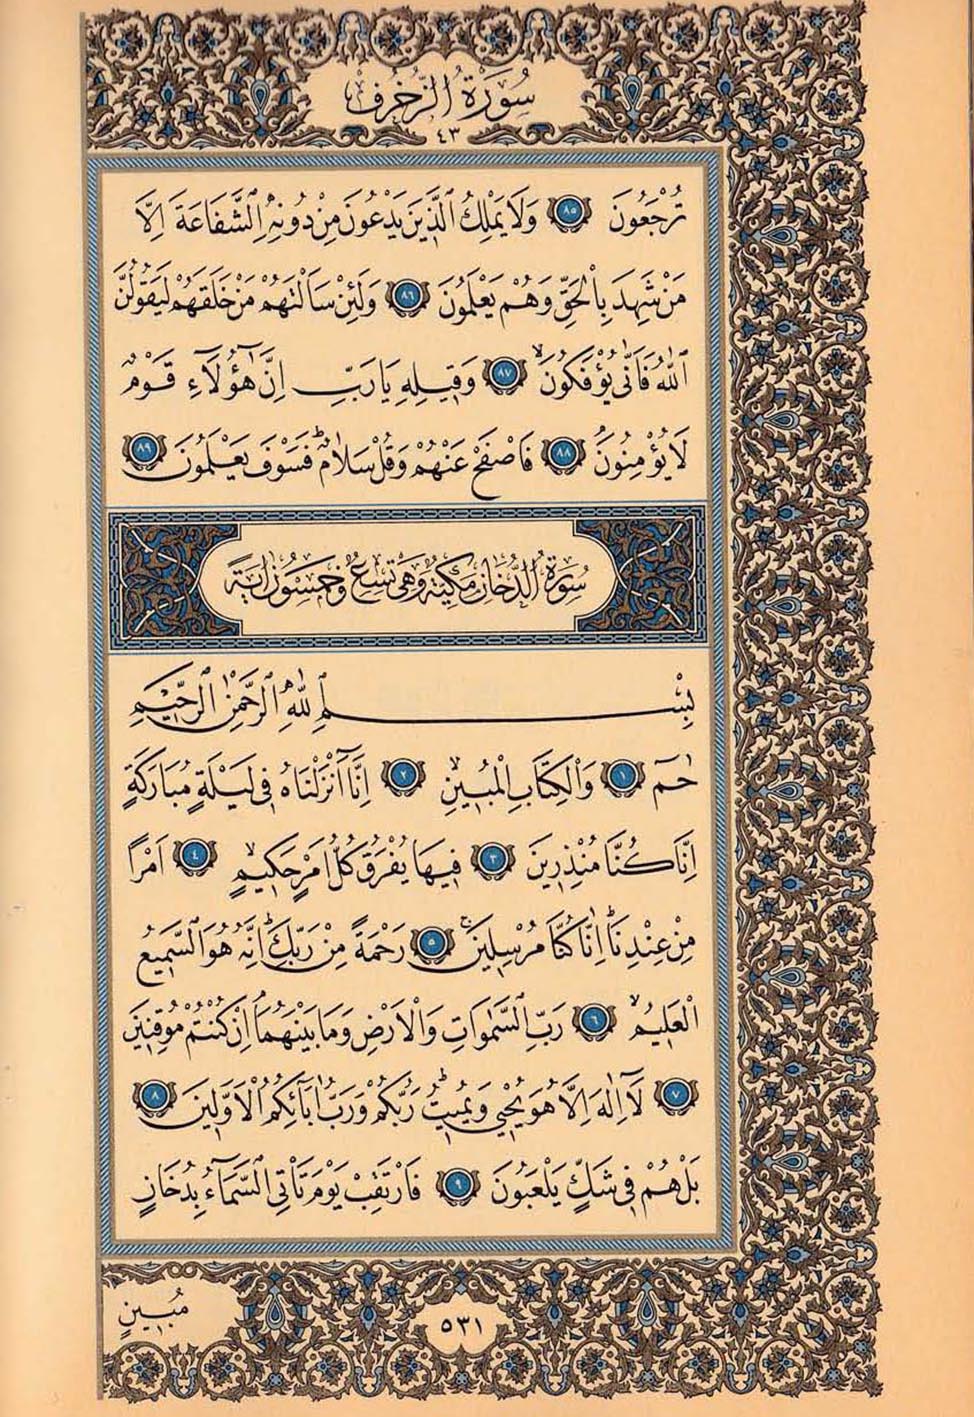 سُورَةُ الزُّخْرُفِ
٤٣
تُرْجَعُونَ ٨٥ وَلَا يَمْلِكُ الَّذ۪ينَ يَدْعُونَ مِنْ دُونِهِ الشَّفَاعَةَ اِلَّا
مَنْ شَهِدَ بِالْحَقِّ وَهُمْ يَعْلَمُونَ ٨٦ وَلَئِنْ سَاَلْتَهُمْ مَنْ خَلَقَهُمْ لَيَقُولُنَّ
اللّٰهُ فَاَنّٰى يُؤْفَكُونَۙ ٨٧ وَق۪يلِه۪ يَا رَبِّ اِنَّ هٰٓؤُ۬لَٓاءِ قَوْمٌ
لَا يُؤْمِنُونَۢ ٨٨ فَاصْفَحْ عَنْهُمْ وَقُلْ سَلَامٌۜ فَسَوْفَ يَعْلَمُونَ ٨٩
سُورَةُ الدُّخَانِ مَكِّيَّةٌ وَهِيَ تِسْعٌ وَخَمْسُونَ اٰيَةً
بِسْمِ اللّٰهِ الرَّحْمٰنِ الرَّح۪يمِ
حٰمٓ ١ وَالْكِتَابِ الْمُب۪ينِۙ ٢ اِنَّٓا اَنْزَلْنَاهُ ف۪ي لَيْلَةٍ مُبَارَكَةٍ
اِنَّا كُنَّا مُنْذِر۪ينَ ٣ ف۪يهَا يُفْرَقُ كُلُّ اَمْرٍ حَك۪يمٍۙ ٤ اَمْرًا
مِنْ عِنْدِنَاۜ اِنَّا كُنَّا مُرْسِل۪ينَۚ ٥ رَحْمَةً مِنْ رَبِّكَۜ اِنَّهُ هُوَ السَّم۪يعُ
الْعَل۪يمُۙ ٦ رَبِّ السَّمٰوَاتِ وَالْاَرْضِ وَمَا بَيْنَهُمَاۢ اِنْ كُنْتُمْ مُوقِن۪ينَ
٧ لَٓا اِلٰهَ اِلَّا هُوَ يُحْي۪ي وَيُم۪يتُۜ رَبُّكُمْ وَرَبُّ اٰبَٓائِكُمُ الْاَوَّل۪ينَ ٨
بَلْ هُمْ ف۪ي شَكٍّ يَلْعَبُونَ ٩ فَارْتَقِبْ يَوْمَ تَأْتِي السَّمَٓاءُ بِدُخَانٍ
مُب۪ينٍ
٥٣١